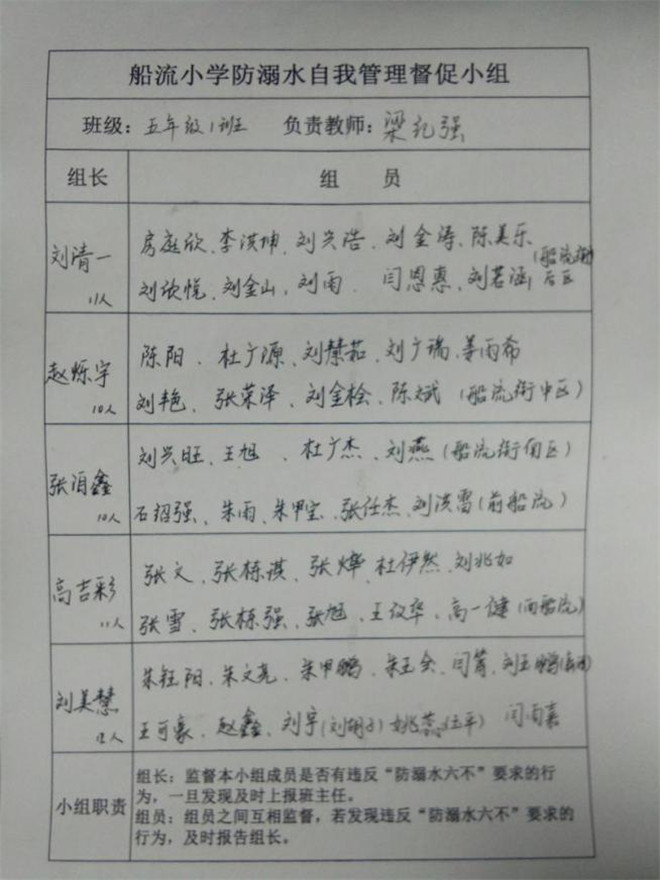 船流小学防溺水自我管理督促小组
班级：五年级1班 负责教师：梁纪强
组长 组 员
刘清一 11人
房庭欣、李淇坤、刘兴浩、刘金涛、陈美乐
刘欣悦、刘金山、刘雨、闫恩惠、刘茗涵(船流街后区
赵烁宇 10人
陈阳、杜广源、刘慧茹、刘广瑞、姜雨希
刘艳、张荣泽、刘金栓、陈斌(船流街中区)
张洎鑫 10人
刘兴旺、王旭、杜广杰、刘燕(船流街 区)
石绍强、朱雨、朱甲宝、张任杰、刘洪雷(前船流)
高吉彩 11人
张文、张栋淇、张烨、杜伊然、刘兆如
张雪、张栋强、张旭、王仪华、高一健(西船流)
刘美慧 12人
朱钰阳、朱文亮、朱甲鹏、朱玉全、闫菁、刘玉鹏
王可豪、赵鑫、刘宇(刘胡子)姚蕊(五平) 闫雨嘉
小组职责
组长：监督本小组成员是否有违反“防溺水六不”要求的行
为，一旦发现及时上报班主任。
组员：组员之间互相监督，若发现违反“防溺水六不”要求的
行为，及时报告组长。